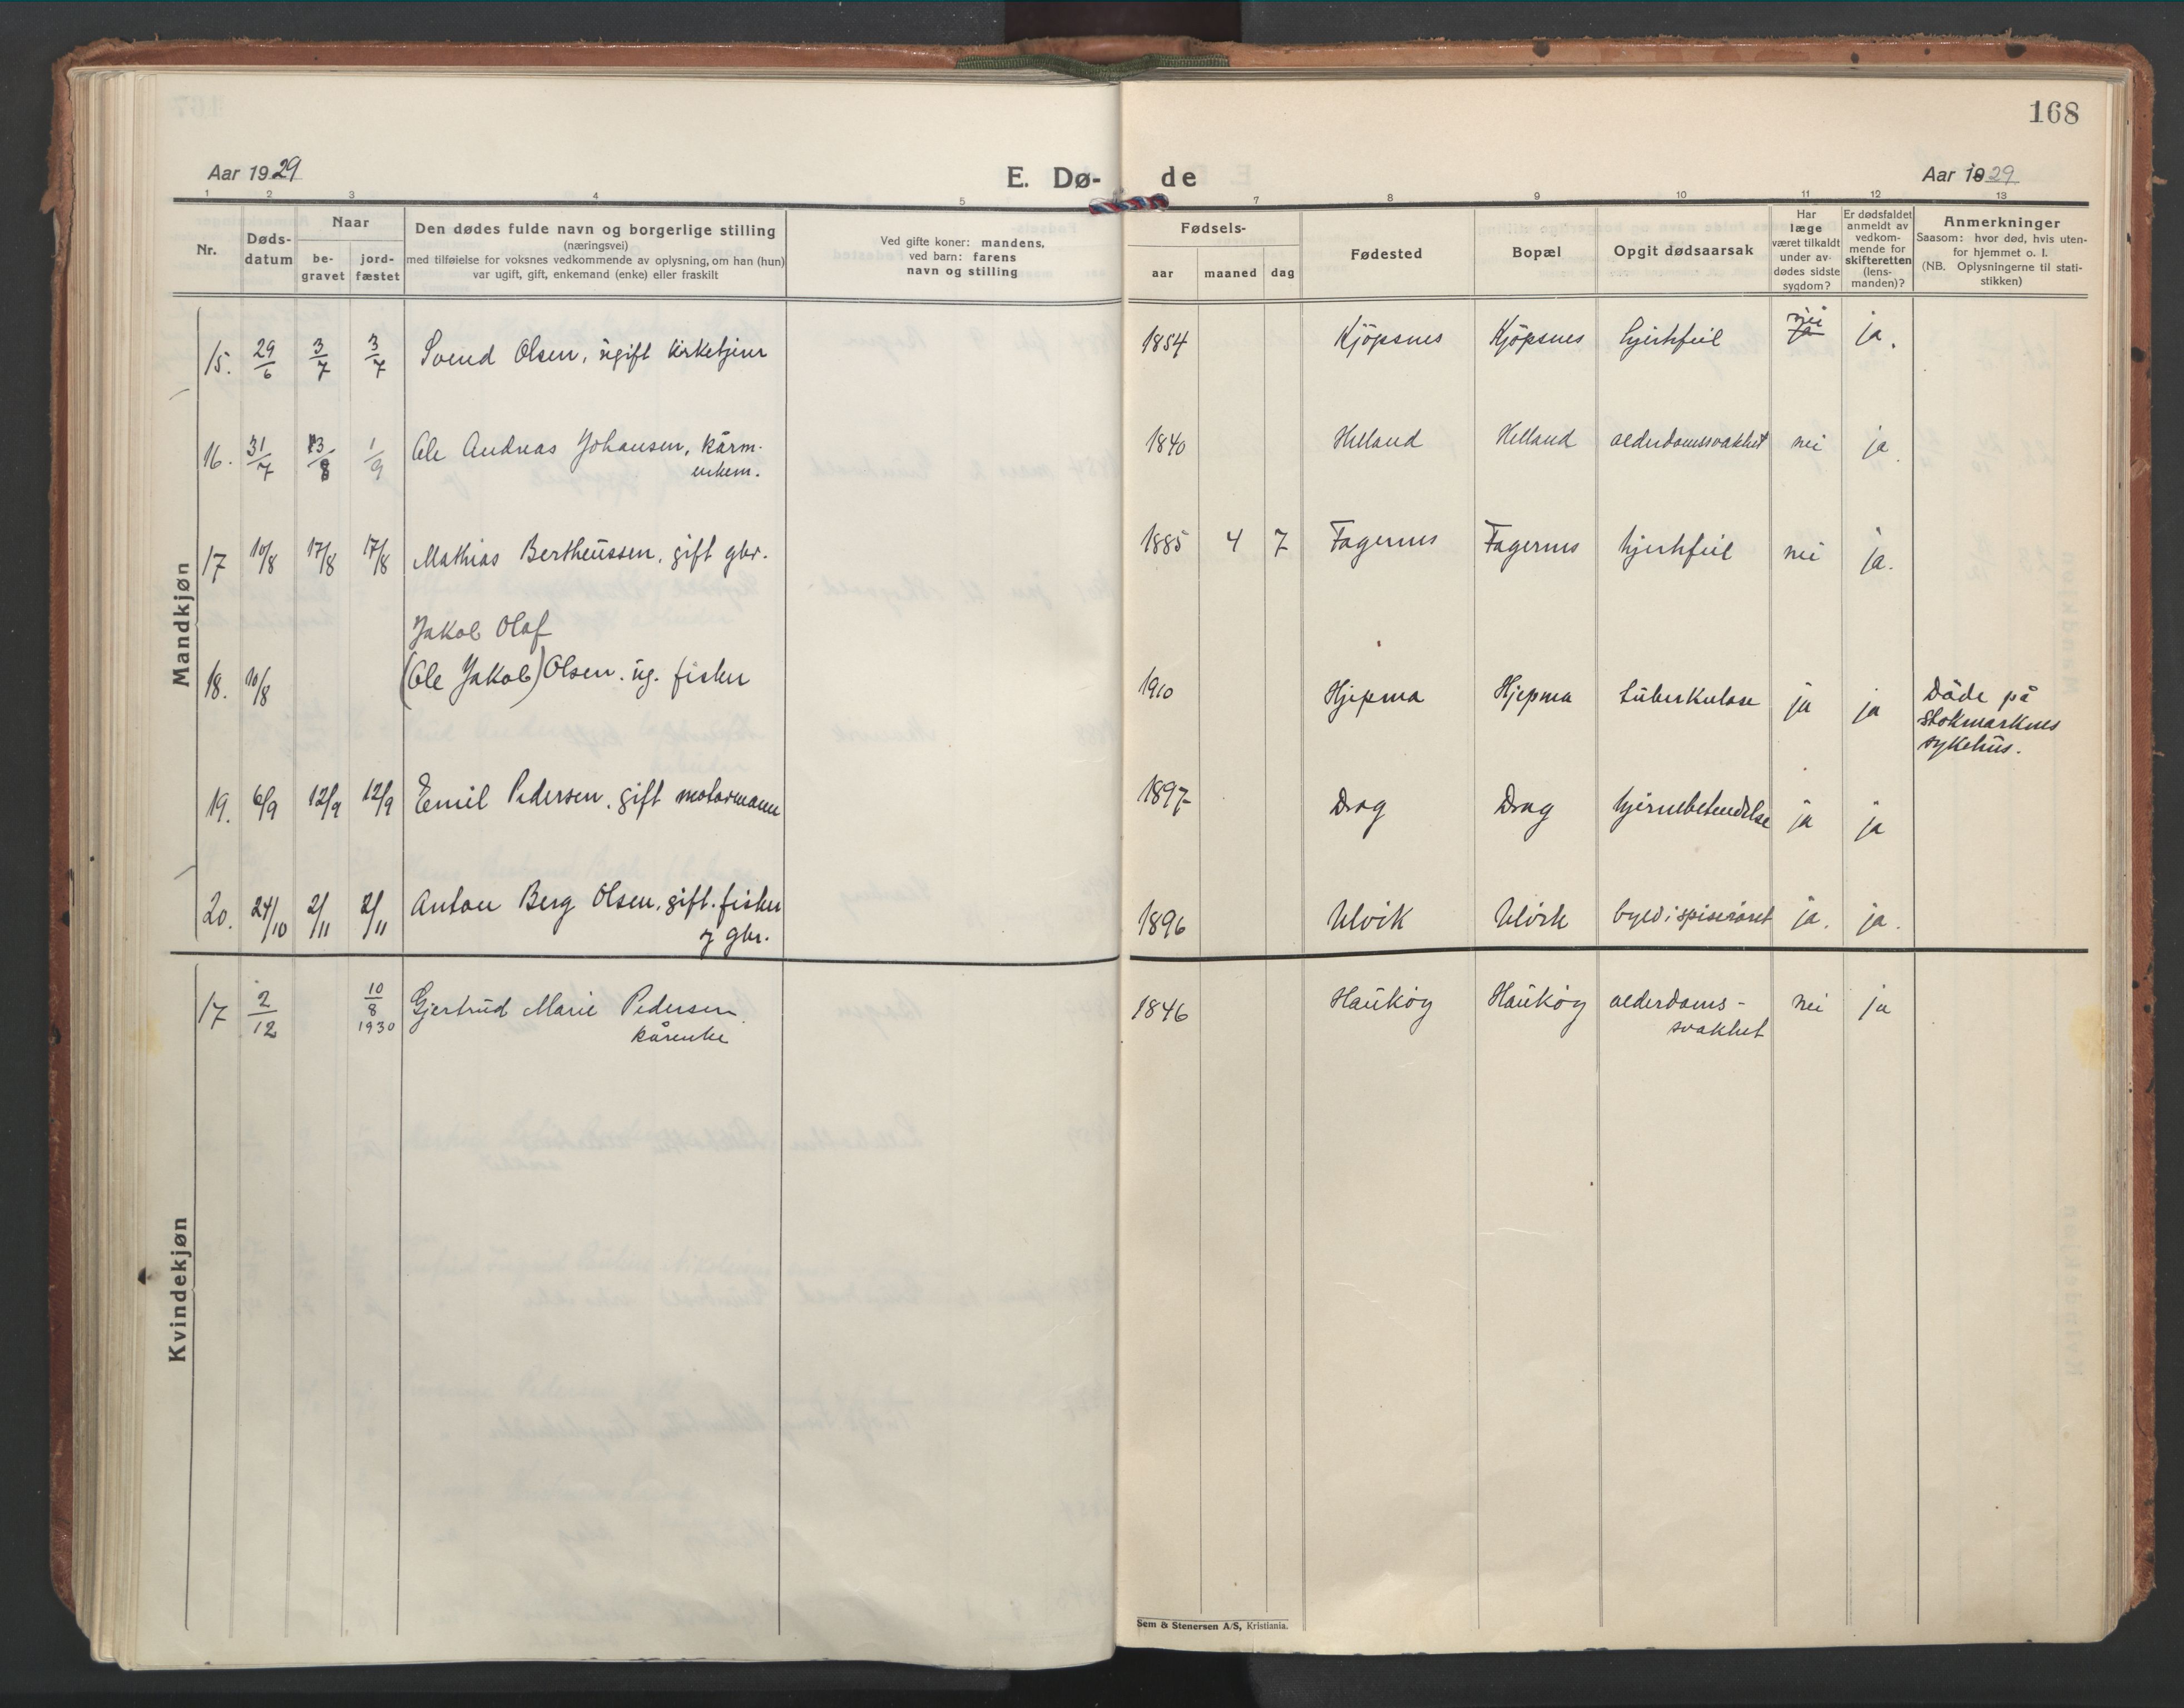 168
Aar 1929
E. Dø- de
Aar 1929
1 2 3 4 5 7 8 9 10 11 12 13
Nr.
Døds-
datum
Naar
be-
gravet
jord-
fæstet
Den dødes fulde navn og borgerlige stilling
(næringsvei)
med tilføielse for voksnes vedkommende av oplysning, om han (hun)
var ugift, gift, enkemand (enke) eller fraskilt
Ved gifte koner: mandens,
ved barn: farens
navn og stilling
Fødsels-
aar maaned dag
Fødested
Bopæl
Opgit dødsaarsak
Har
læge
været tilkaldt
under av-
dødes sidste
sygdom?
Er dødsfaldet
anmeldt av
vedkom-
mende for
skifteretten
(lens-
manden)?
Anmerkninger
Saasom: hvor død, hvis uten-
for hjemmet o. l.
(NB. Oplysningerne til stati-
stikken)
Mandkjøn
15. 29/6 3/7 3/7 Svend Olsen, ugift kirketjener 1854 Kjöpsnes Kjöpsnes hjertefeil nei ja.
16. 31/7 13/8 1/9 Ole Andreas Johansen, kårm. 1840 Helland Helland alderdomssvakhet nei ja.
enkem.
17 10/8 17/8 17/8 Mathias Bertheussen, gift gbr. 1885 4 7 Fagernes Fagernes hjertefeil nei ja.
Jakob Olaf
18. 10/8 (Ole Jakob) Olsen. ug. fisker 1910 Hjepma Hjepma tuberkulose ja ja Döde på
Stokmarknes
sykehus.
19. 6/9 12/9 12/9 Emil Pedersen, gift motormann 1897 Drag Drag hjernebetendelse ja ja
20. 24/10 2/11 2/11 Anton Berg Olsen, gift. fisker 1896 Ulvik Ulvik byld i spiserøret ja. ja.
og gbr.
Kvindekjøn
17 2/12 10/8 1930 Gjertrud Marie Pedersen 1846 Haukøy Haukøy alderdoms-
svakhet nei ja
kårenke
Sem & Stenersen A/S, Kristiania.